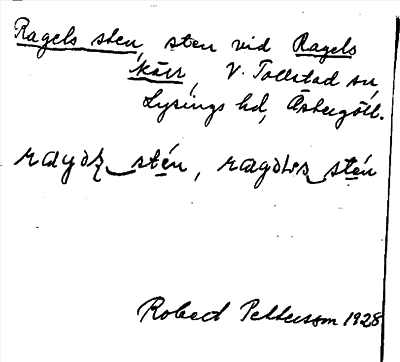 Ragels sten, sten vid Ragels
kärr, V. Tollstad sn,
Lysings hd, Östergötl.
stén, stén
Robert Pettersson 1928